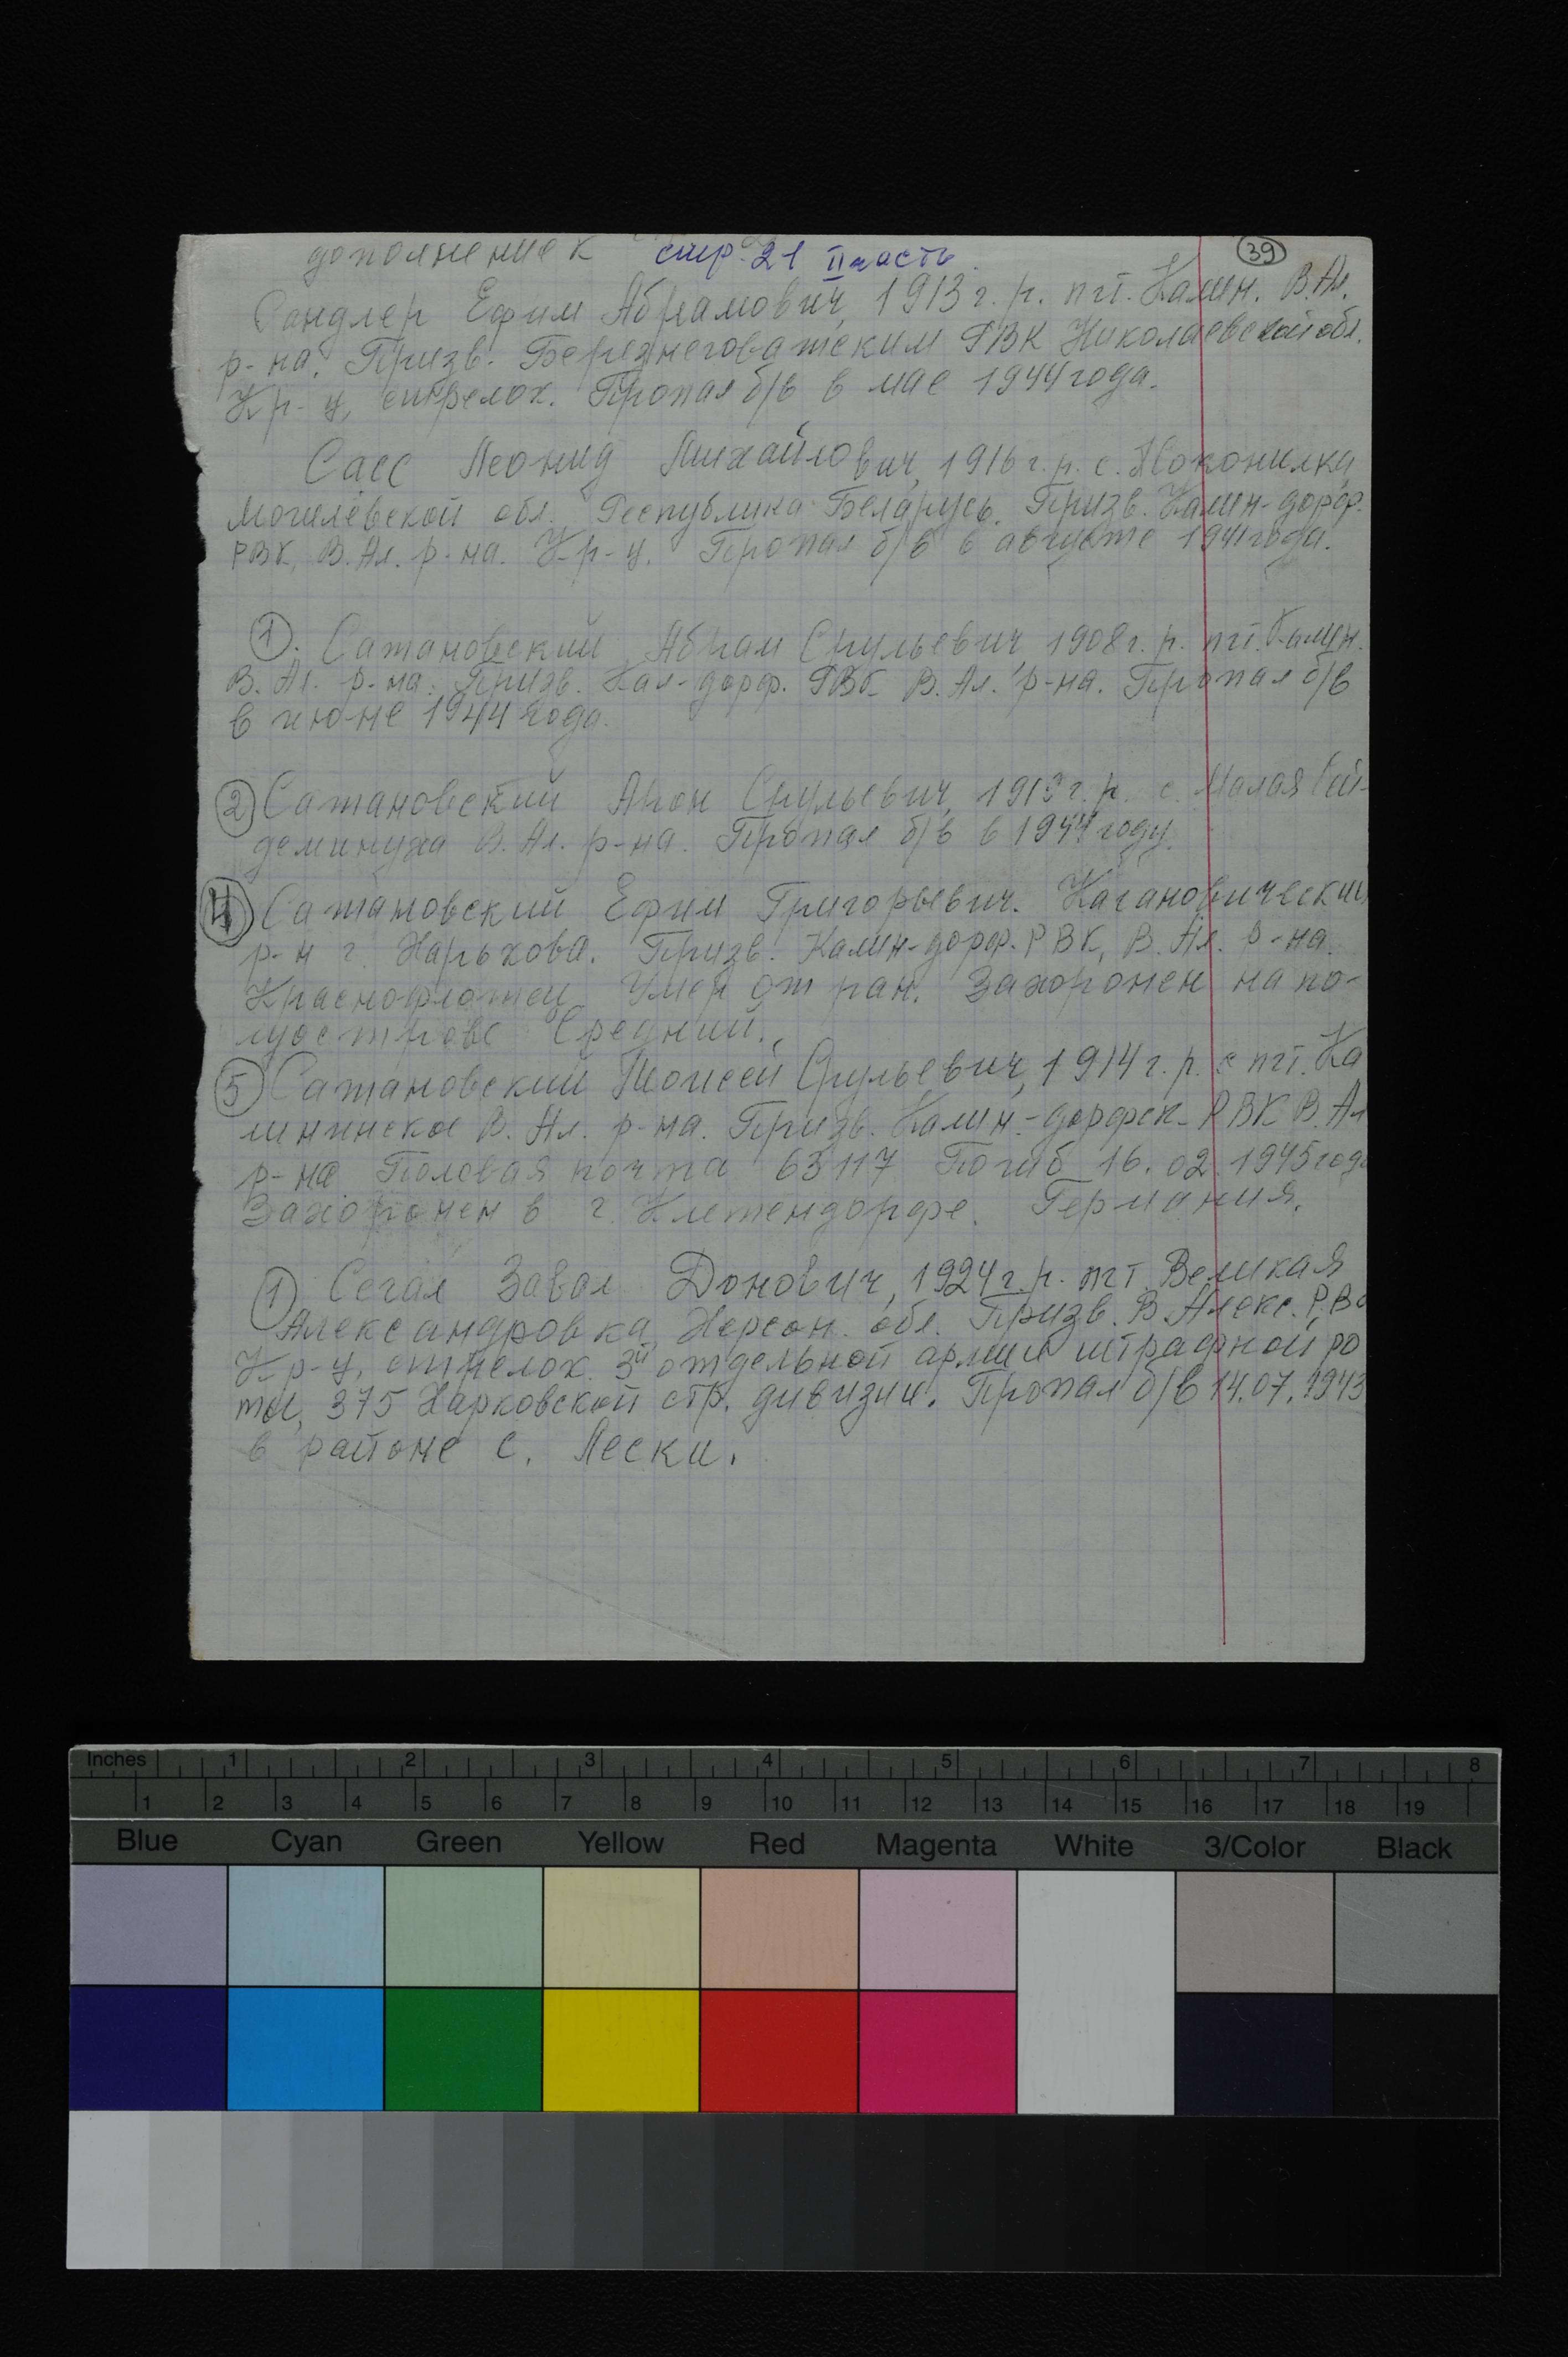 дополнение к стр. 21 II часть.
39
Сандлер Ефим Абрамович, 1913 г. р. пгт. Калин. В. Ал.
р-на. Призв. Березнеговатским РВК Николаевской обл.
Кр-ц, стрелок. Пропал б/в в мае 1944 года.
Сасс Леонид Михайлович, 1916 г. р. с.
Могилёвской обл. Республика Беларусь. Призв. Калин-дорф.
РВК, В. Ал. р-на. Кр-ц. Пропал б/в в августе 1941 года.
1. Сатановский Абрам Срульевич, 1908 г. р. пгт. Калин.
В. Ал. р-на. Призв. Кал-дорф. РВК В. Ал. р-на. Пропал б/в
в июне 1944 года.
2 Сатановский Арон Срульевич, г. р. с. Малая Сей-
деминуха В. Ал. р-на. Пропал б/в в 1944 году.
4 Сатановский Ефим Григорьевич. Кагановический
р-н г. Харькова. Призв. Калин-дорф. РВК, В. Ал. р-на.
Краснофлотец. Умер от ран. Захоронен на по-
луострове Средний.
5 Сатановский Моисей Срульевич, 1914 г. р. с пгт. Ка
лининское В. Ал. р-на. Призв. Калин-дорфск. РВК В. Ал
р-на Полевая почта 63117 Погиб 16. 02. 1945 года
Захоронен в г. Клетендорфе. Германия.
1 Сегал Завал Донович, 1924 г. р. пгт. Великая
Александровка, Херсон. обл. Призв. В. Алекс. Р.В
Кр-ц, стрелок. 3й отдельной армии штрафной ро
ты, 375 Харковской стр. дивизии. Пропал б/в 14.07.1943
в районе с. Лески.
Inches 1 2 3 4 5 6 7 8
1 2 3 4 5 6 7 8 9 10 11 12 13 14 15 16 17 18 19
Blue Cyan Green Yellow Red Magenta White 3/Color Black